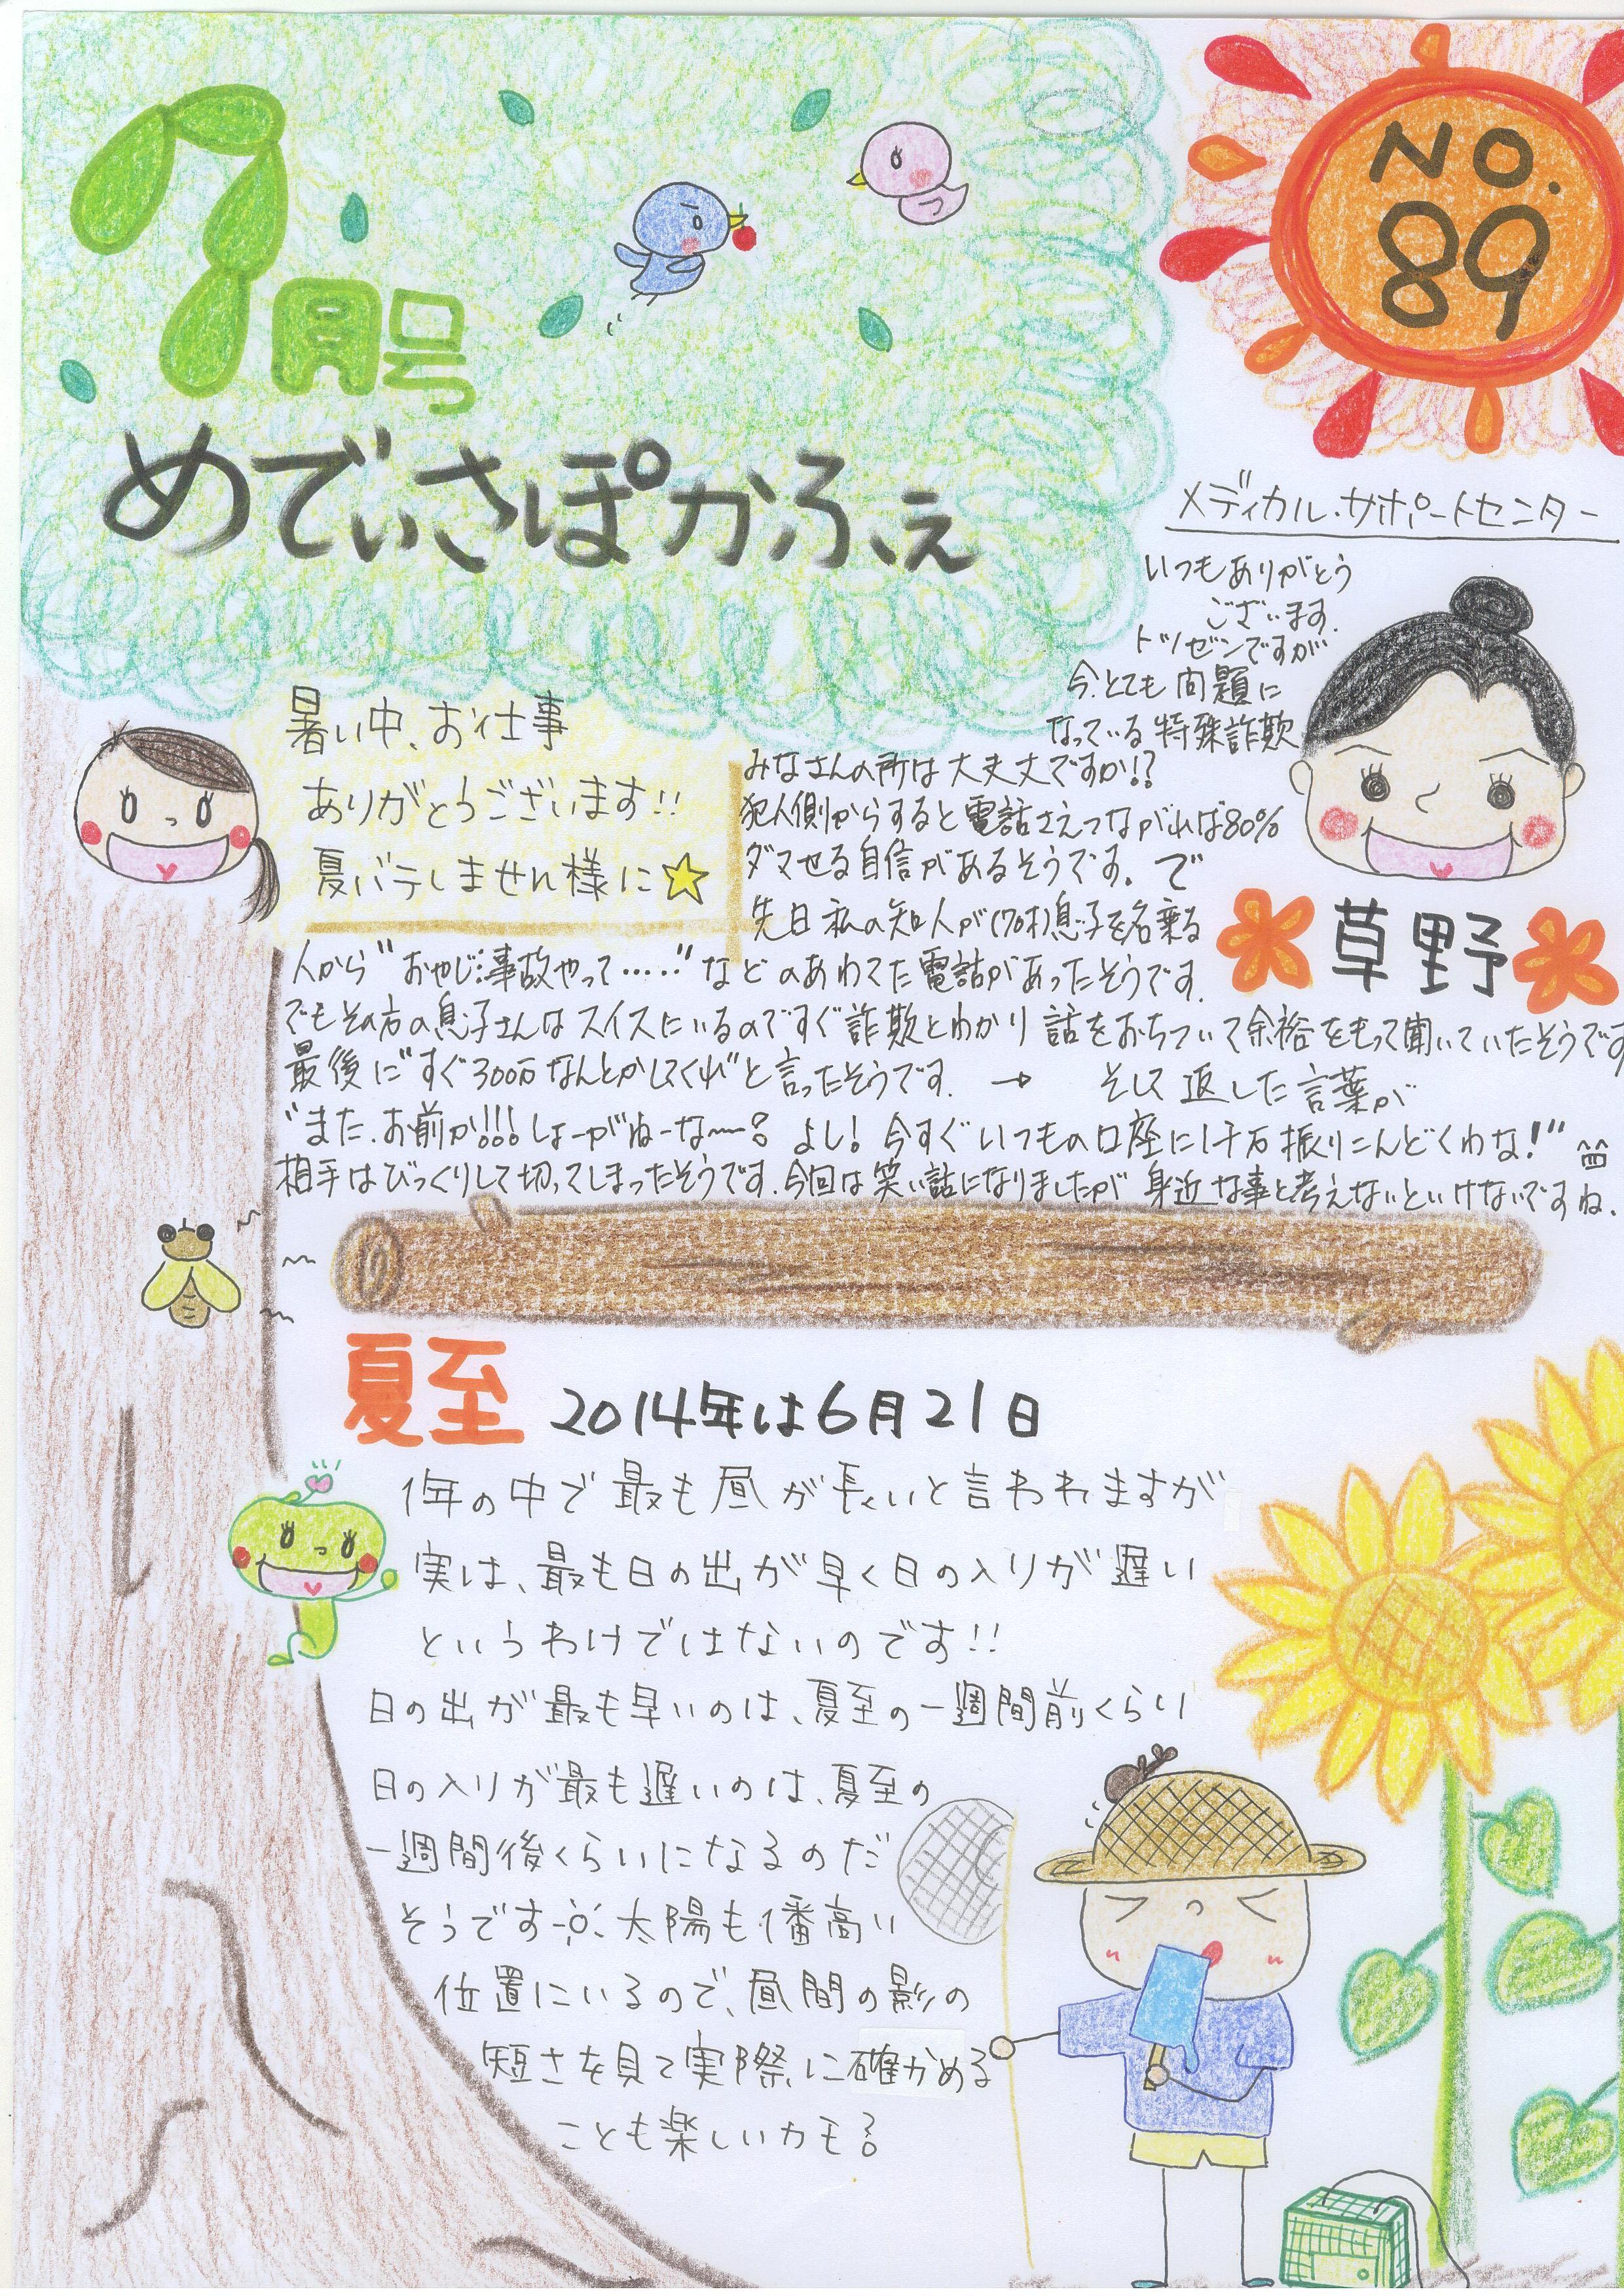 7月号
NO.
89
めでぃさぽかふぇ
メディカル・サポートセンター
暑い中、お仕事
ありがとうございます!!
夏バテしません様に☆
いつもありがとう
ございます。
トツゼンですが
今、とても問題に
なっている特殊詐欺
みなさんの所は大丈夫ですか!?
犯人側からすると電話さえつながれば80%
ダマせる自信があるそうです。で
先日私の知人が(70才)息子を名乗る
草野
人から"おやじ:事故やって……"などのあわてた電話があったそうです。
でもその方の息子さんはスイスにいるのですぐ詐欺とわかり話をおちついて余裕をもって聞いていたそうです
最後に"すぐ300万なんとかしてくれ"と言ったそうです。→ そして返した言葉が
"また、お前か!!!しょーがねーな〜 よし!今すぐいつもの口座に1千万振りこんどくわな!"
相手はびっくりして切ってしまったそうです。今回は笑い話になりましたが身近な事と考えないといけないですね。
夏至 2014年は6月21日
1年の中で最も昼が長いと言われますが
実は、最も日の出が早く日の入りが遅い
というわけではないのです!!
日の出が最も早いのは、夏至の一週間前くらい
日の入りが最も遅いのは、夏至の
一週間後くらいになるのだ
そうです 太陽も1番高い
位置にいるので、昼間の影の
短さを見て実際に確かめる
ことも楽しいカモ